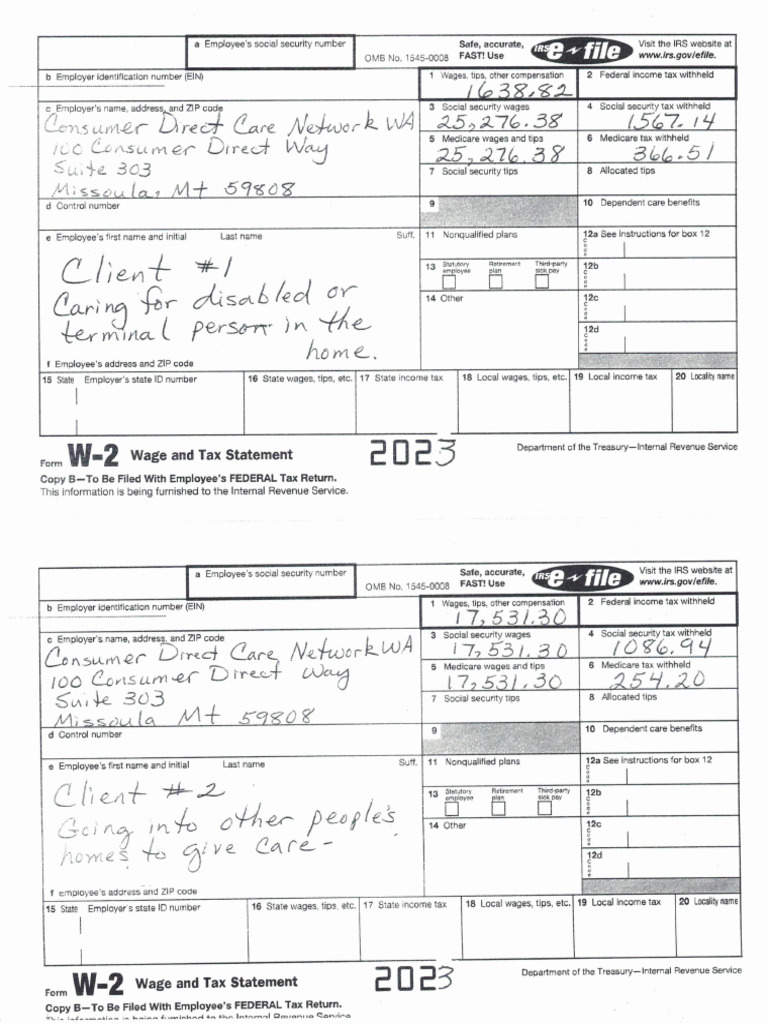 a Employee's social security number
OMB No. 1545-0008
Safe, accurate,
FAST! Use
IRS e-file
Visit the IRS website at
www.irs.gov/efile.
b Employer identification number (EIN)
1 Wages, tips, other compensation
1638.82
2 Federal income tax withheld
c Employer's name, address, and ZIP code
Consumer Direct Care Network WA
100 Consumer Direct Way
Suite 303
Missoula, Mt 59808
3 Social security wages
25,276.38
4 Social security tax withheld
1567.14
5 Medicare wages and tips
25,276.38
6 Medicare tax withheld
366.51
7 Social security tips
8 Allocated tips
d Control number
9
10 Dependent care benefits
e Employee's first name and initial Last name Suff.
11 Nonqualified plans
12a See instructions for box 12
Code
Client #1
Caring for disabled or
terminal person in the
home.
13 Statutory employee Retirement plan Third-party sick pay
12b
Code
14 Other
12c
Code
12d
Code
f Employee's address and ZIP code
15 State Employer's state ID number
16 State wages, tips, etc.
17 State income tax
18 Local wages, tips, etc.
19 Local income tax
20 Locality name
Form W-2 Wage and Tax Statement
2023
Department of the Treasury—Internal Revenue Service
Copy B—To Be Filed With Employee's FEDERAL Tax Return.
This information is being furnished to the Internal Revenue Service.
a Employee's social security number
OMB No. 1545-0008
Safe, accurate,
FAST! Use
IRS e-file
Visit the IRS website at
www.irs.gov/efile.
b Employer identification number (EIN)
1 Wages, tips, other compensation
17,531.30
2 Federal income tax withheld
c Employer's name, address, and ZIP code
Consumer Direct Care Network WA
100 Consumer Direct Way
Suite 303
Missoula Mt 59808
3 Social security wages
17,531.30
4 Social security tax withheld
1086.94
5 Medicare wages and tips
17,531.30
6 Medicare tax withheld
254.20
7 Social security tips
8 Allocated tips
d Control number
9
10 Dependent care benefits
e Employee's first name and initial Last name Suff.
11 Nonqualified plans
12a See instructions for box 12
Code
Client #2
Going into other people's
homes to give care-
13 Statutory employee Retirement plan Third-party sick pay
12b
Code
14 Other
12c
Code
12d
Code
f Employee's address and ZIP code
15 State Employer's state ID number
16 State wages, tips, etc.
17 State income tax
18 Local wages, tips, etc.
19 Local income tax
20 Locality name
Form W-2 Wage and Tax Statement
2023
Department of the Treasury—Internal Revenue Service
Copy B—To Be Filed With Employee's FEDERAL Tax Return.
This information is being furnished to the Internal Revenue Service